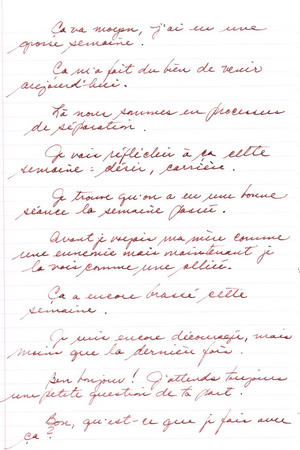 Ça va moyen, j'ai eu une
grosse semaine.
Ça m'a fait du bien de venir
aujourd'hui.
Là nous sommes en processus
de séparation.
Je vais réfléchir à ça cette
semaine : désir, carrière.
Je trouve qu'on a eu une bonne
séance la semaine passée.
Avant je voyais ma mère comme
une ennemie mais maintenant je
la vois comme une alliée.
Ça a encore brassé cette
semaine.
Je suis encore découragée, mais
moins que la dernière fois.
Bon bonjour! J'attends toujours
une petite question de ta part.
Bon, qu'est-ce que je fais avec
ça?